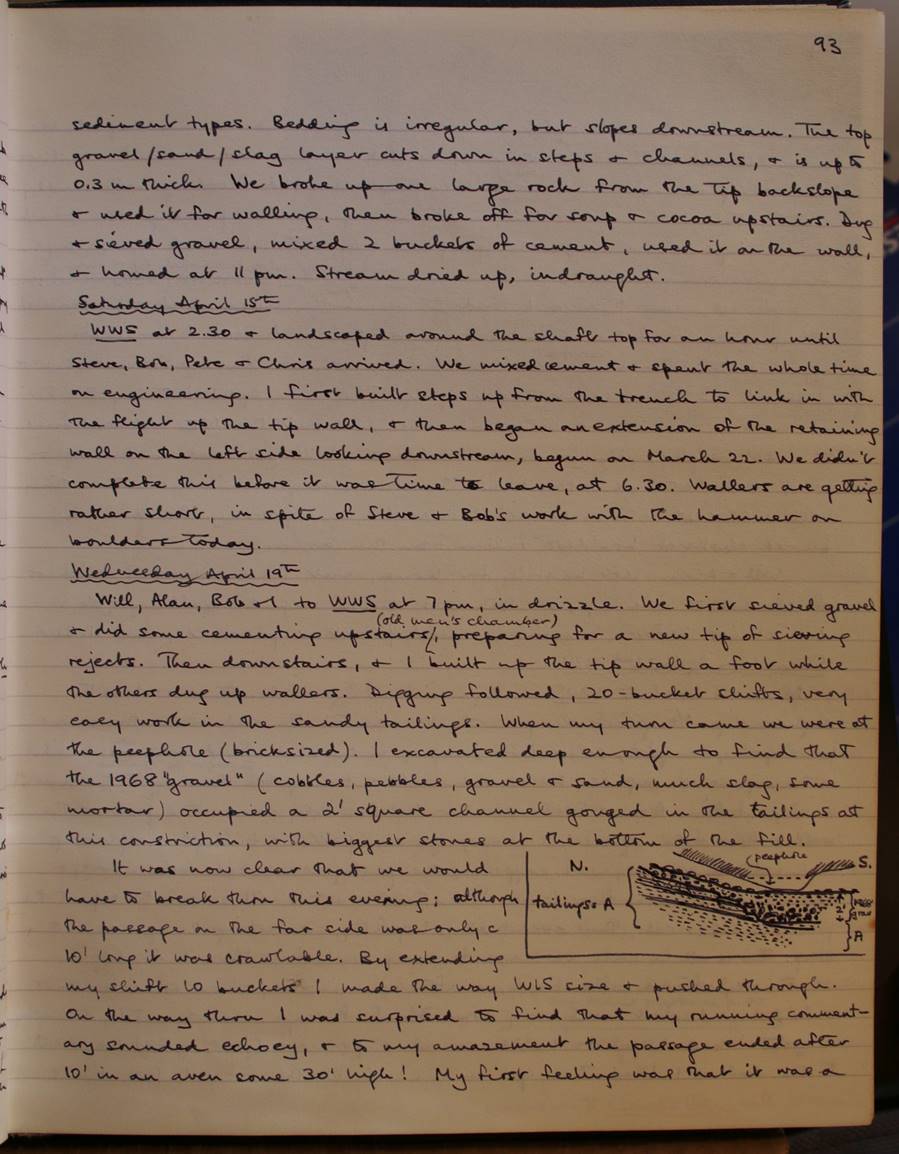 93
sediment types. Bedding is irregular, but slopes downstream. The top
gravel/sand/slag layer cuts down in steps & channels, & is up to
0.3 m thick. We broke up one large rock from the tip backslope
& used it for walling, then broke off for soup & cocoa upstairs. Dug
& sieved gravel, mixed 2 buckets of cement, used it on the wall,
& homed at 11 pm. Stream dried up, indraught.
Saturday April 15th
WWS at 2.30 & landscaped around the shaft top for an hour until
Steve, Bob, Pete & Chris arrived. We mixed cement & spent the whole time
on engineering. I first built steps up from the trench to link in with
the flight up the tip wall, & then began an extension of the retaining
wall on the left side looking downstream, begun on March 22. We didn't
complete this before it was time to leave, at 6.30. Wallers are getting
rather short, in spite of Steve & Bob's work with the hammer on
boulders today.
Wednesday April 19th
Will, Alan, Bob & I to WWS at 7 pm, in drizzle. We first sieved gravel
(old men's chamber)
& did some cementing upstairs, preparing for a new tip of sieving
rejects. Then downstairs, & I built up the tip wall a foot while
the others dug up wallers. Digging followed, 20-bucket shifts, very
easy work in the sandy tailings. When my turn came we were at
the peephole (bricksized). I excavated deep enough to find that
the 1968 "gravel" (cobbles, pebbles, gravel & sand, much slag, some
mortar) occupied a 2' square channel gouged in the tailings at
this constriction, with biggest stones at the bottom of the fill.
It was now clear that we would
have to break thru this evening; although
the passage on the far side was only c
10' long it was crawlable. By extending
my shift 10 buckets I made the way WIS size & pushed through.
On the way thru I was surprised to find that my running comment-
ary sounded echoey, & to my amazement the passage ended after
10' in an aven some 30' high! My first feeling was that it was a
N.
peephole
S.
tailings A
2'
1968
A